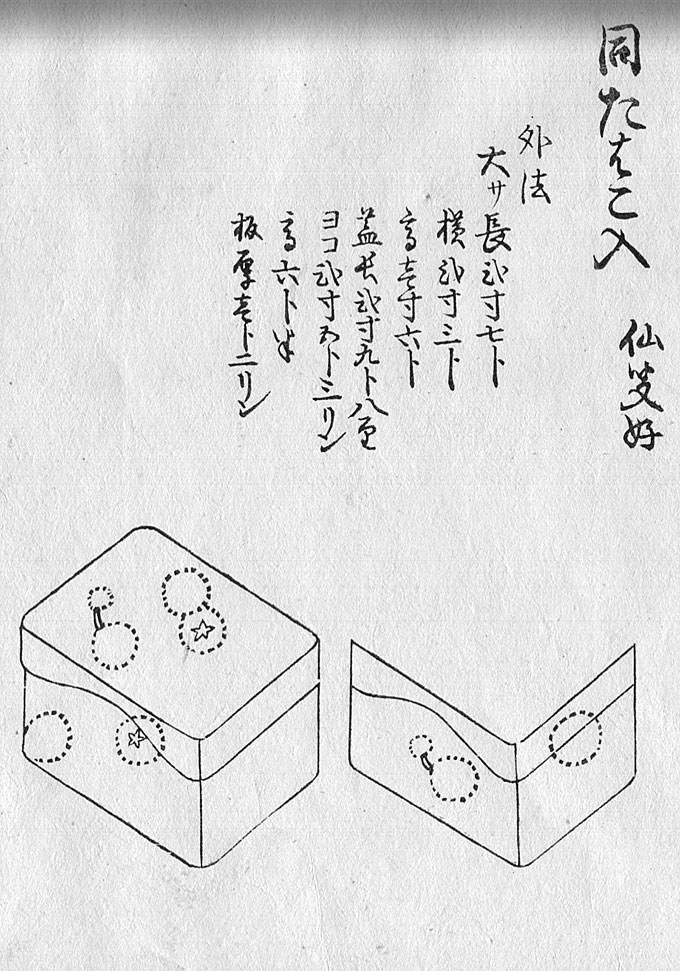 同たはこ入
仙叟好
外法
大サ長弐寸七卜
横弐寸三卜
高壱寸六卜
蓋長弐寸九卜八里
ヨコ弐寸五卜三リン
高六卜半
板厚壱卜二リン